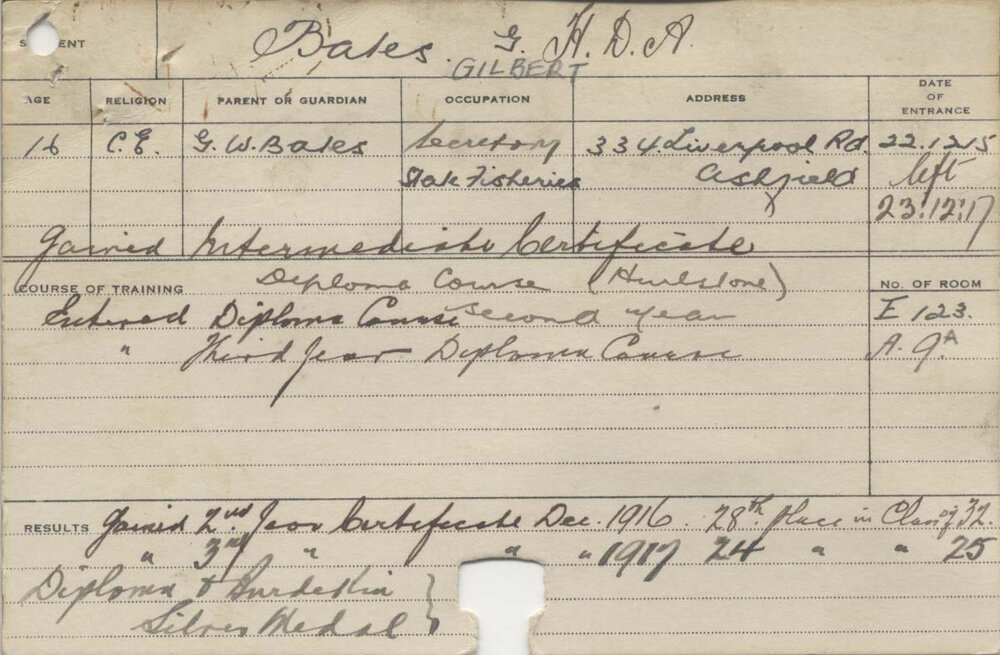 STUDENT Bates. G. H.D.A.
GILBERT
AGE RELIGION PARENT OR GUARDIAN OCCUPATION ADDRESS DATE OF ENTRANCE
16 C.E. G.W. Bates Secretary 334 Liverpool Rd. 22.12.15
State Fisheries Ashfield left
23.12.17
Gained Intermediate Certificate
COURSE OF TRAINING Diploma Course (Hurlstone) No. OF ROOM
Entered Diploma Course Second Year E 123.
" Third Year Diploma Course A. 9A
RESULTS Gained 2nd Year Certificate Dec. 1916. 28th place in Class of 32.
" 3rd " " " 1917 24 " " 25
Diploma & Burdekin
Silver Medal